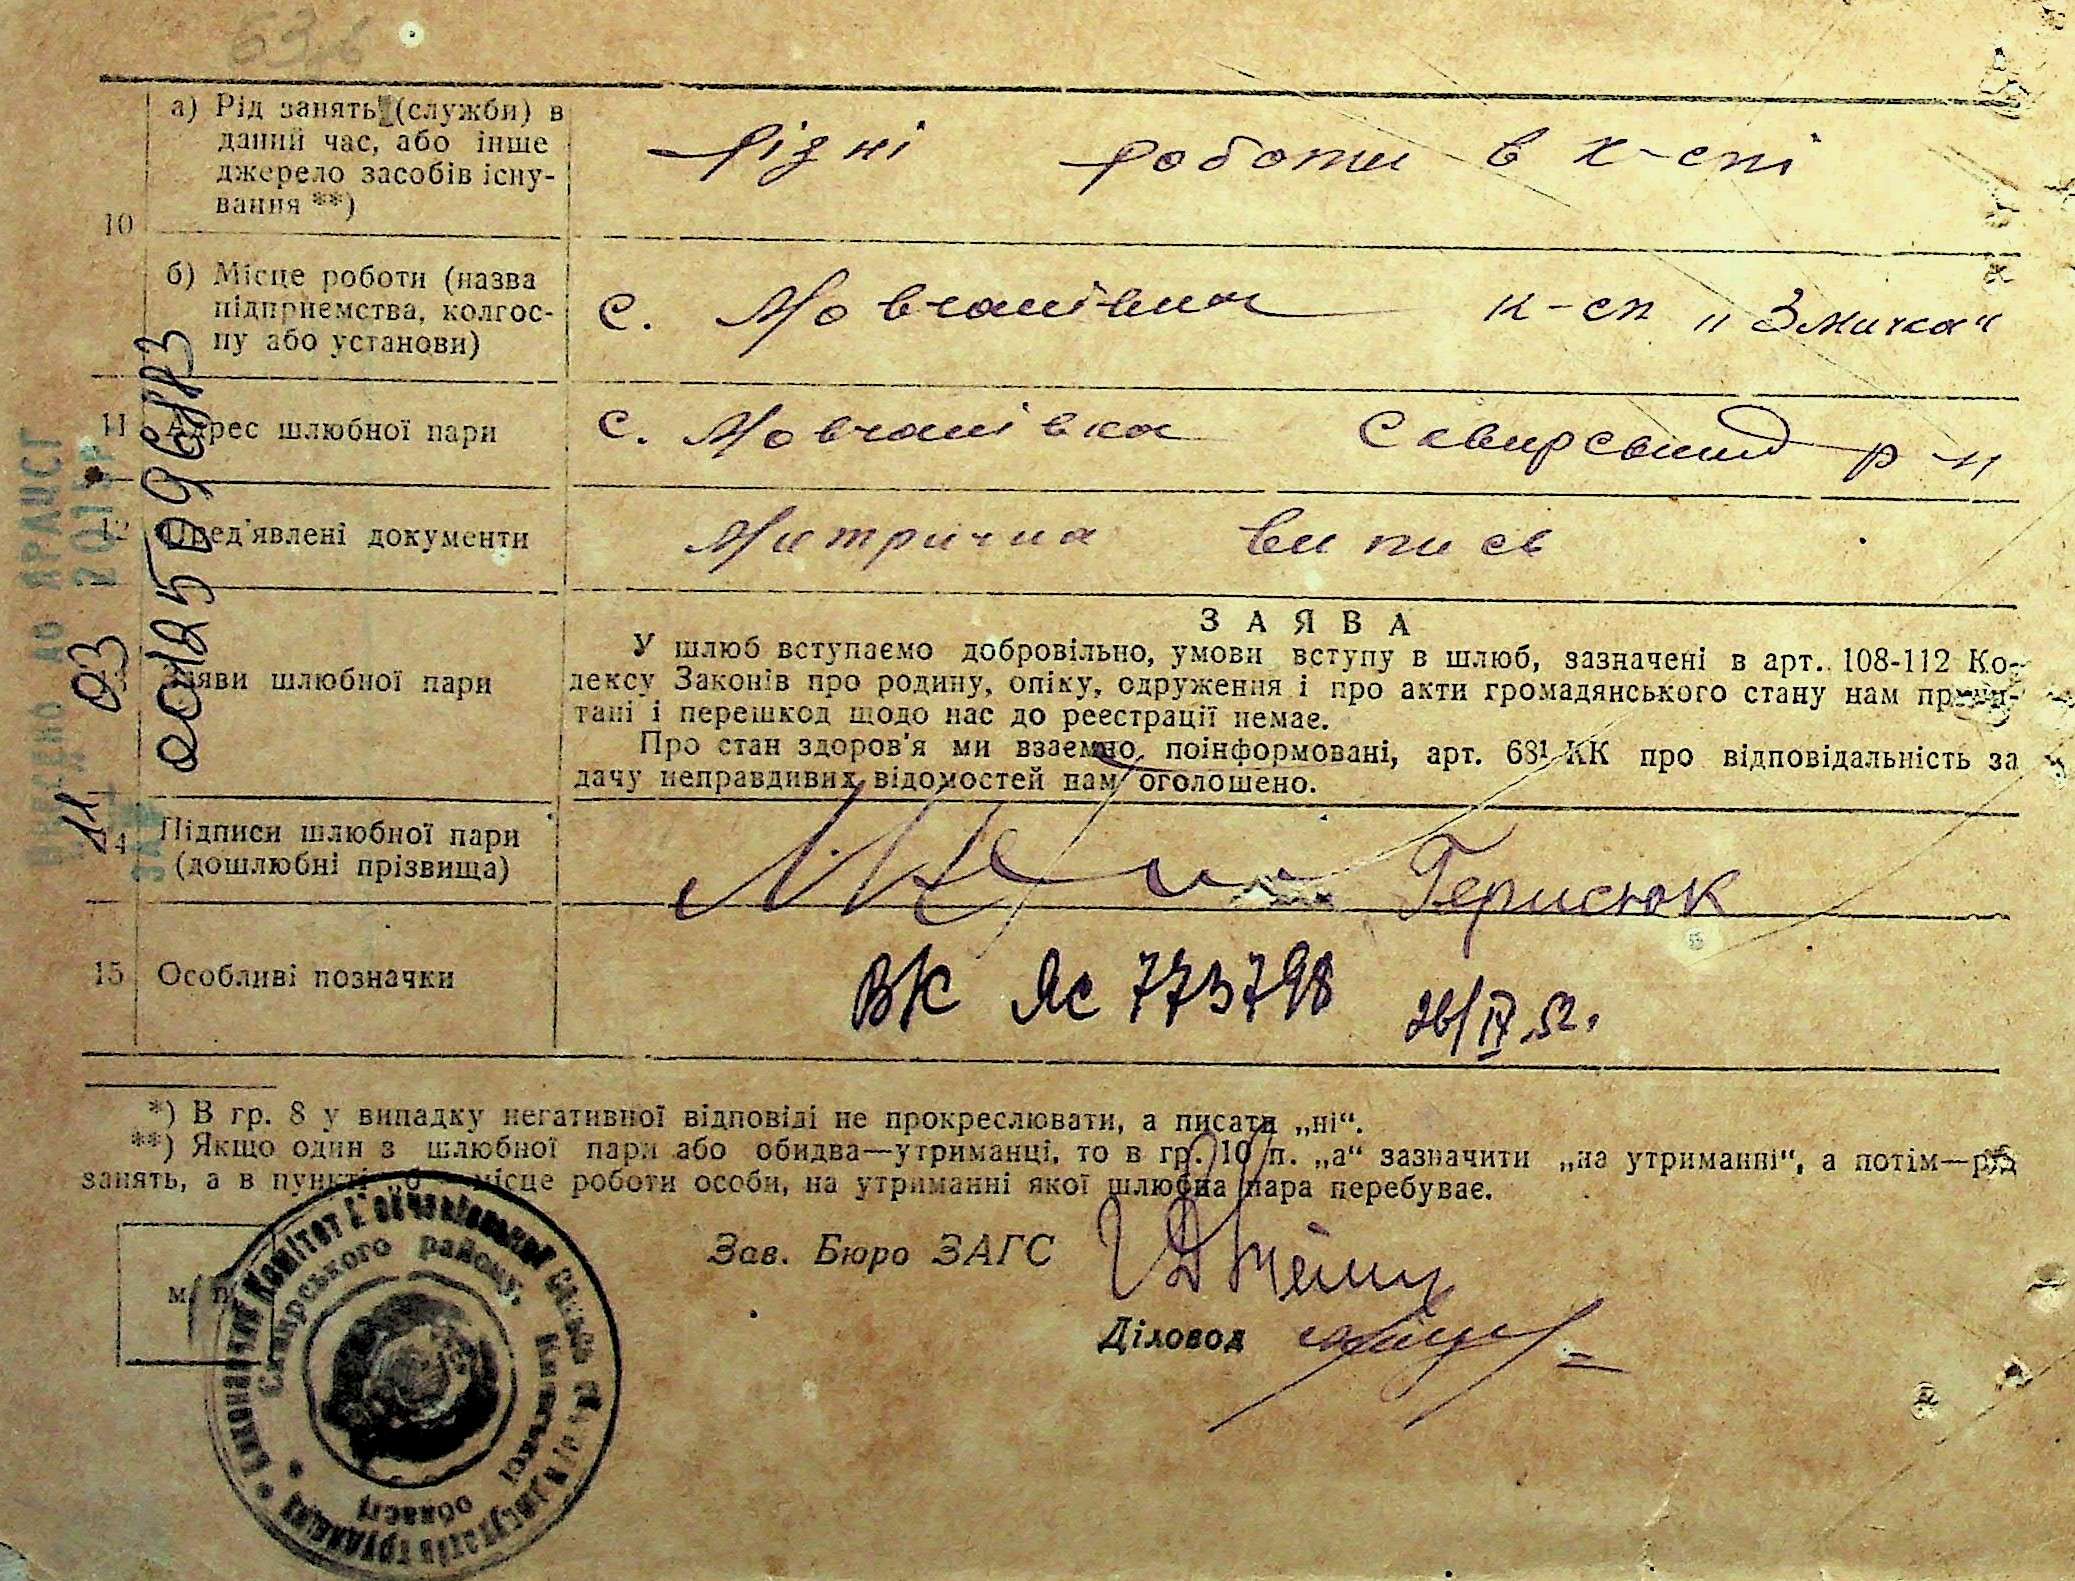 а) Рід занять (служби) в
даний час, або інше
джерело засобів існу-
вання **)
різні роботи в к-спі
10
б) Місце роботи (назва
підприємства, колгос-
пу або установи)
с. Мовчанівка к-сп „Змичка“
11 Адрес шлюбної пари
с. Мовчанівка Сквирський р-н
12 Пред'явлені документи
Митрична випись
ЗАЯВА
У шлюб вступаємо добровільно, умови вступу в шлюб, зазначені в арт. 108-112 Ко-
дексу Законів про родину, опіку, одруження і про акти громадянського стану нам прочи-
тані і перешкод щодо нас до реєстрації немає.
Про стан здоров'я ми взаємно поінформовані, арт. 68¹ КК про відповідальність за
дачу неправдивих відомостей нам оголошено.
Заяви шлюбної пари
14 Підписи шлюбної пари
(дошлюбні прізвища)
Герисюк
15 Особливі позначки
ВК ЯС 773798 26/IV.52.
*) В гр. 8 у випадку негативної відповіді не прокреслювати, а писати „ні“.
**) Якщо один з шлюбної пари або обидва—утриманці, то в гр. 10 п. „а“ зазначити „на утриманні“, а потім—рід
занять, а в пункті „б“—місце роботи особи, на утриманні якої шлюбна пара перебуває.
м. п.
Зав. Бюро ЗАГС
Діловод
Виконавчий Комітет
Сквирського району,
Київської
області
депутатів трудящих